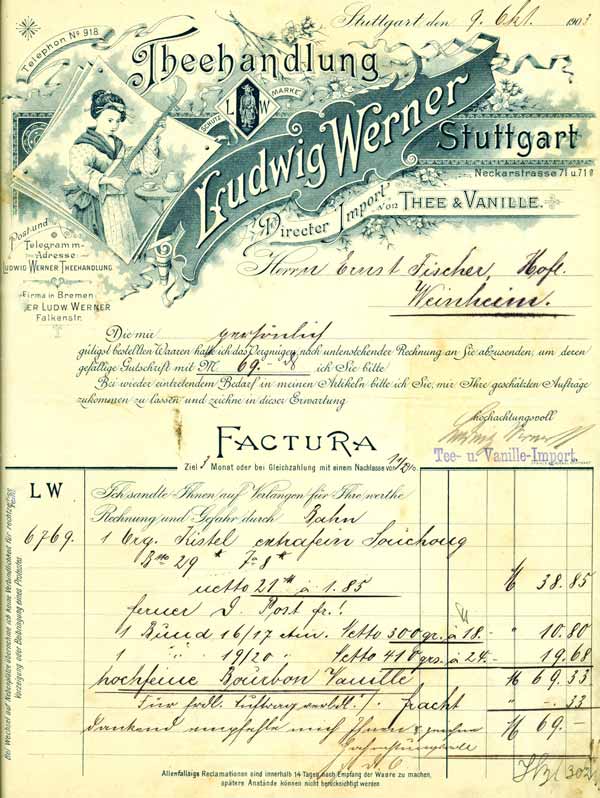 Telephon No 918
Stuttgart den 9. Okt. 1903
Theehandlung
SCHUTZ MARKE
L W
Ludwig Werner
Stuttgart
Neckarstrasse 71 u. 71
Directer Import von THEE & VANILLE.
Post und
Telegramm-
Adresse
LUDWIG WERNER THEEHANDLUNG
Firma in Bremen
ER LUDW WERNER
Falkenstr.
Herrn Ernst Fischer, Hofl.
Weinheim.
Die mir persönlich
gütigst bestellten Waaren hatte ich das Vergnügen nach untenstehender Rechnung an Sie abzusenden, um deren
gefällige Gutschrift mit M 69.- ich Sie bitte
Bei wieder eintretendem Bedarf in meinen Artikeln bitte ich Sie, mir Ihre geschätzten Aufträge
zukommen zu lassen und zeichne in dieser Erwartung
Hochachtungsvoll
Ludwig Werner
Tee- u. Vanille-Import.
FACTURA
Ziel 3 Monat oder bei Gleichzahlung mit einem Nachlasse von %
LW
Ich sandte Ihnen auf Verlangen für Ihre werthe
Rechnung und Gefahr durch Bahn
6769. 1 Org. Kistel extrafein Souchong
Bto 29 Ta 8
netto 21 à 1.85 M 38.85
ferner d. Post fr.
1 Bund 16/17 ctm. Netto 300 gr. à 18.- " 10.80
1 " 19/20 " Netto 410 grs. à 24.- 19.68
hochfeine Bourbon Vanille M 69.33
Fracht " -.33
dankend empfehle mich Ihnen & zeichne M 69.-
Hochachtungsvoll
Bei Wechsel auf Nebenplätze übernehme ich keine Verbindlichkeit für rechtzeitige
Vorzeigung oder Beibringung eines Protestes
Allenfallsige Reclamationen sind innerhalb 14 Tagen nach Empfang der Waare zu machen,
spätere Anstände können nicht berücksichtigt werden